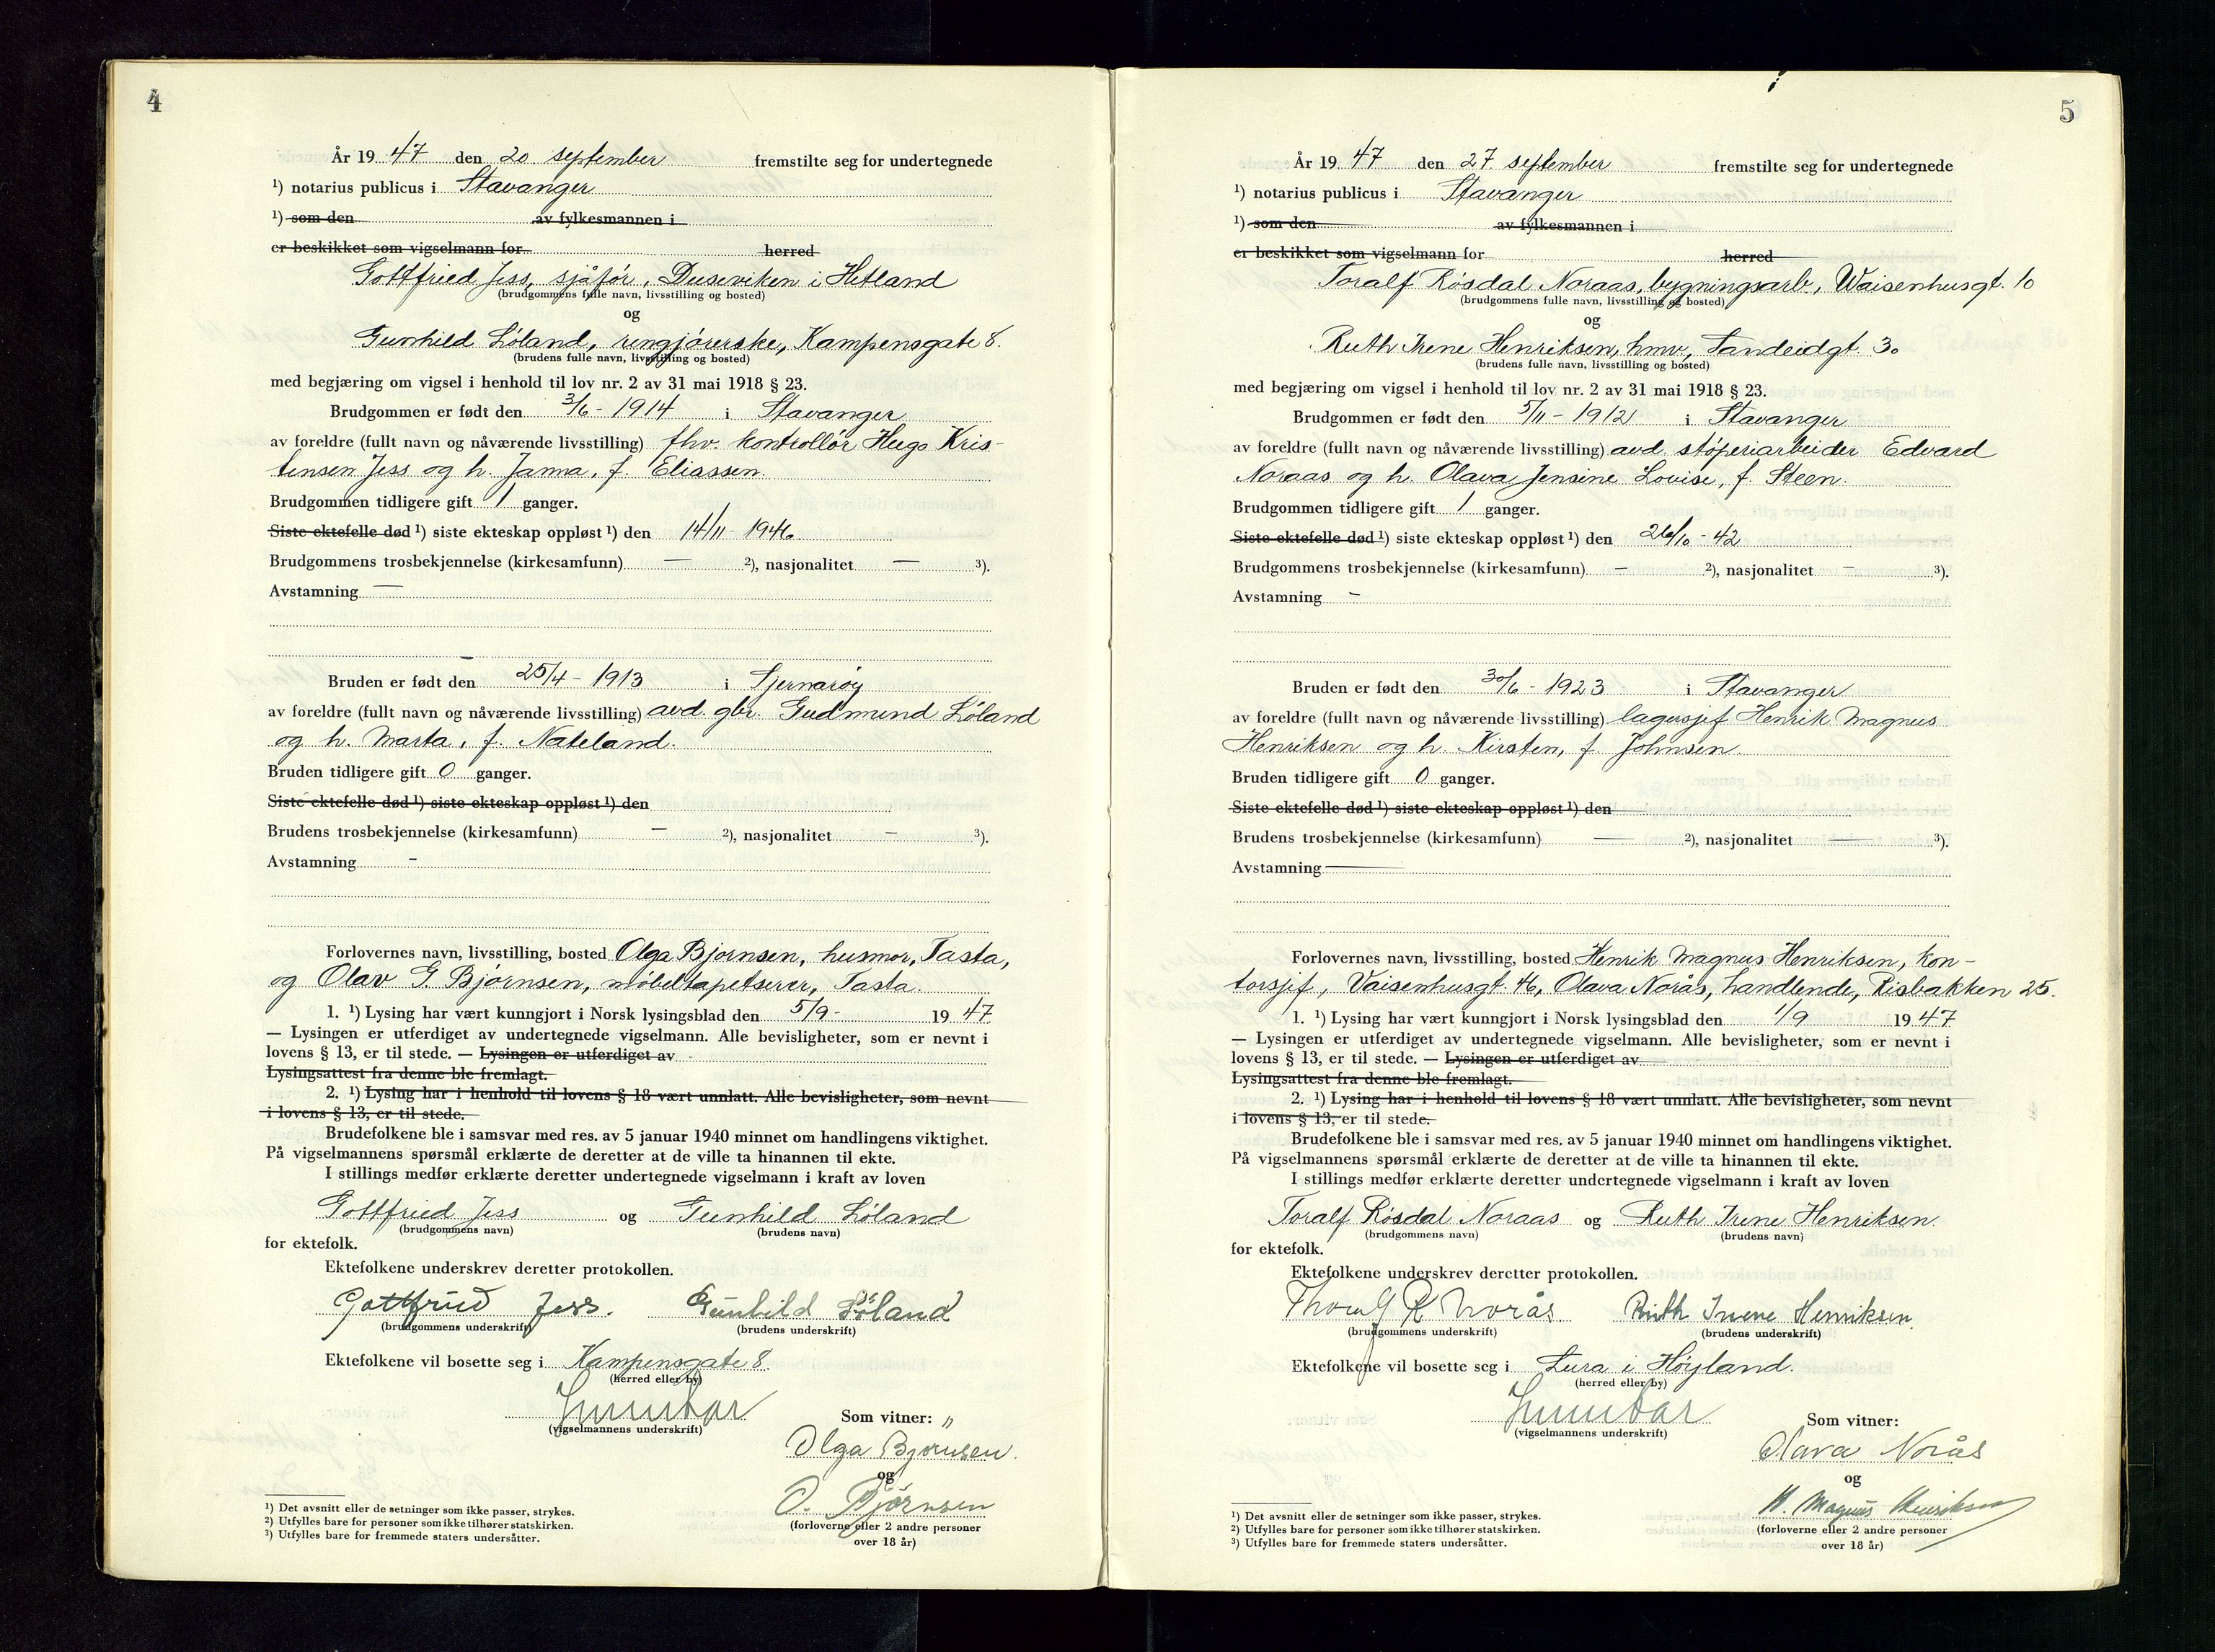 4
År 19 47 den 20 september fremstilte seg for undertegnede
¹) notarius publicus i Stavanger
¹) som den av fylkesmannen i
er beskikket som vigselmann for herred
Gottfried Jess, sjåfør, Duseviken i Hetland
(brudgommens fulle navn, livsstilling og bosted)
og
Gunhild Løland, rengjørerske, Kampensgate 8.
(brudens fulle navn, livsstilling og bosted)
med begjæring om vigsel i henhold til lov nr. 2 av 31 mai 1918 § 23.
Brudgommen er født den 3/6 - 1914 i Stavanger
av foreldre (fullt navn og nåværende livsstilling) fhv. kontrollør Hugo Kris-
tensen Jess og h. Janna, f. Eliassen.
Brudgommen tidligere gift 1 ganger.
Siste ektefelle død ¹) siste ekteskap oppløst ¹) den 14/11 - 1946.
Brudgommens trosbekjennelse (kirkesamfunn) — ²), nasjonalitet — ³).
Avstamning —
Bruden er født den 25/4 - 1913 i Sjernarøy
av foreldre (fullt navn og nåværende livsstilling) avd. gbr. Gudmund Løland
og h. Marta, f. Nateland.
Bruden tidligere gift 0 ganger.
Siste ektefelle død ¹) siste ekteskap oppløst ¹) den
Brudens trosbekjennelse (kirkesamfunn) — ²), nasjonalitet — ³).
Avstamning -
Forlovernes navn, livsstilling, bosted Olga Bjørnsen, husmor, Tasta,
og Olav G. Bjørnsen, møbeltapetserer, Tasta.
1. ¹) Lysing har vært kunngjort i Norsk lysingsblad den 5/9 - 19 47
— Lysingen er utferdiget av undertegnede vigselmann. Alle bevisligheter, som er nevnt i
lovens § 13, er til stede. — Lysingen er utferdiget av -
Lysingsattest fra denne ble fremlagt.
2. ¹) Lysing har i henhold til lovens § 18 vært unnlatt. Alle bevisligheter, som nevnt
i lovens § 13, er til stede.
Brudefolkene ble i samsvar med res. av 5 januar 1940 minnet om handlingens viktighet.
På vigselmannens spørsmål erklærte de deretter at de ville ta hinannen til ekte.
I stillings medfør erklærte deretter undertegnede vigselmann i kraft av loven
Gottfried Jess og Gunhild Løland
(brudgommens navn) (brudens navn)
for ektefolk.
Ektefolkene underskrev deretter protokollen.
Gottfried Jess. Gunhild Løland
(brudgommens underskrift) (brudens underskrift)
Ektefolkene vil bosette seg i Kampensgate 8.
(herred eller by)
(vigselmannens underskrift)
Som vitner: "
Olga Bjørnsen
og
O. Bjørnsen
(forloverne eller 2 andre personer
over 18 år)
¹) Det avsnitt eller de setninger som ikke passer, strykes.
²) Utfylles bare for personer som ikke tilhører statskirken.
³) Utfylles bare for fremmede staters undersåtter.
5
År 19 47 den 27. september fremstilte seg for undertegnede
¹) notarius publicus i Stavanger
¹) som den av fylkesmannen i
er beskikket som vigselmann for herred
Toralf Røsdal Noraas, bygningsarb, Waisenhusgt. 10
(brudgommens fulle navn, livsstilling og bosted)
og
Ruth Irene Henriksen, hmv, Sandeidgt. 3.
(brudens fulle navn, livsstilling og bosted)
med begjæring om vigsel i henhold til lov nr. 2 av 31 mai 1918 § 23.
Brudgommen er født den 5/11 - 1912 i Stavanger
av foreldre (fullt navn og nåværende livsstilling) avd. støperiarbeider Edvard
Noraas og h. Olava Jensine Lovise, f. Steen.
Brudgommen tidligere gift 1 ganger.
Siste ektefelle død ¹) siste ekteskap oppløst ¹) den 26/10 - 42
Brudgommens trosbekjennelse (kirkesamfunn) — ²), nasjonalitet — ³).
Avstamning -
Bruden er født den 30/6 - 1923 i Stavanger
av foreldre (fullt navn og nåværende livsstilling) lagersjef Henrik Magnus
Henriksen og h. Kirsten, f. Johnsen.
Bruden tidligere gift 0 ganger.
Siste ektefelle død ¹) siste ekteskap oppløst ¹) den
Brudens trosbekjennelse (kirkesamfunn) — ²), nasjonalitet — ³).
Avstamning —
Forlovernes navn, livsstilling, bosted Henrik Magnus Henriksen, kon-
torsjef, Vaisenhusgt. 46, Olava Norås, handlende, Risbakken 25.
1. ¹) Lysing har vært kunngjort i Norsk lysingsblad den 1/9 19 47
— Lysingen er utferdiget av undertegnede vigselmann. Alle bevisligheter, som er nevnt i
lovens § 13, er til stede. — Lysingen er utferdiget av
Lysingsattest fra denne ble fremlagt.
2. ¹) Lysing har i henhold til lovens § 18 vært unnlatt. Alle bevisligheter, som nevnt
i lovens § 13, er til stede.
Brudefolkene ble i samsvar med res. av 5 januar 1940 minnet om handlingens viktighet.
På vigselmannens spørsmål erklærte de deretter at de ville ta hinannen til ekte.
I stillings medfør erklærte deretter undertegnede vigselmann i kraft av loven
Toralf Røsdal Noraas og Ruth Irene Henriksen
(brudgommens navn) (brudens navn)
for ektefolk.
Ektefolkene underskrev deretter protokollen.
R Norås. Ruth Irene Henriksen.
(brudgommens underskrift) (brudens underskrift)
Ektefolkene vil bosette seg i Lura i Høyland.
(herred eller by)
(vigselmannens underskrift)
Som vitner:
Olava Norås
og
H. Magnus Henriksen
(forloverne eller 2 andre personer
over 18 år)
¹) Det avsnitt eller de setninger som ikke passer, strykes.
²) Utfylles bare for personer som ikke tilhører statskirken.
³) Utfylles bare for fremmede staters undersåtter.